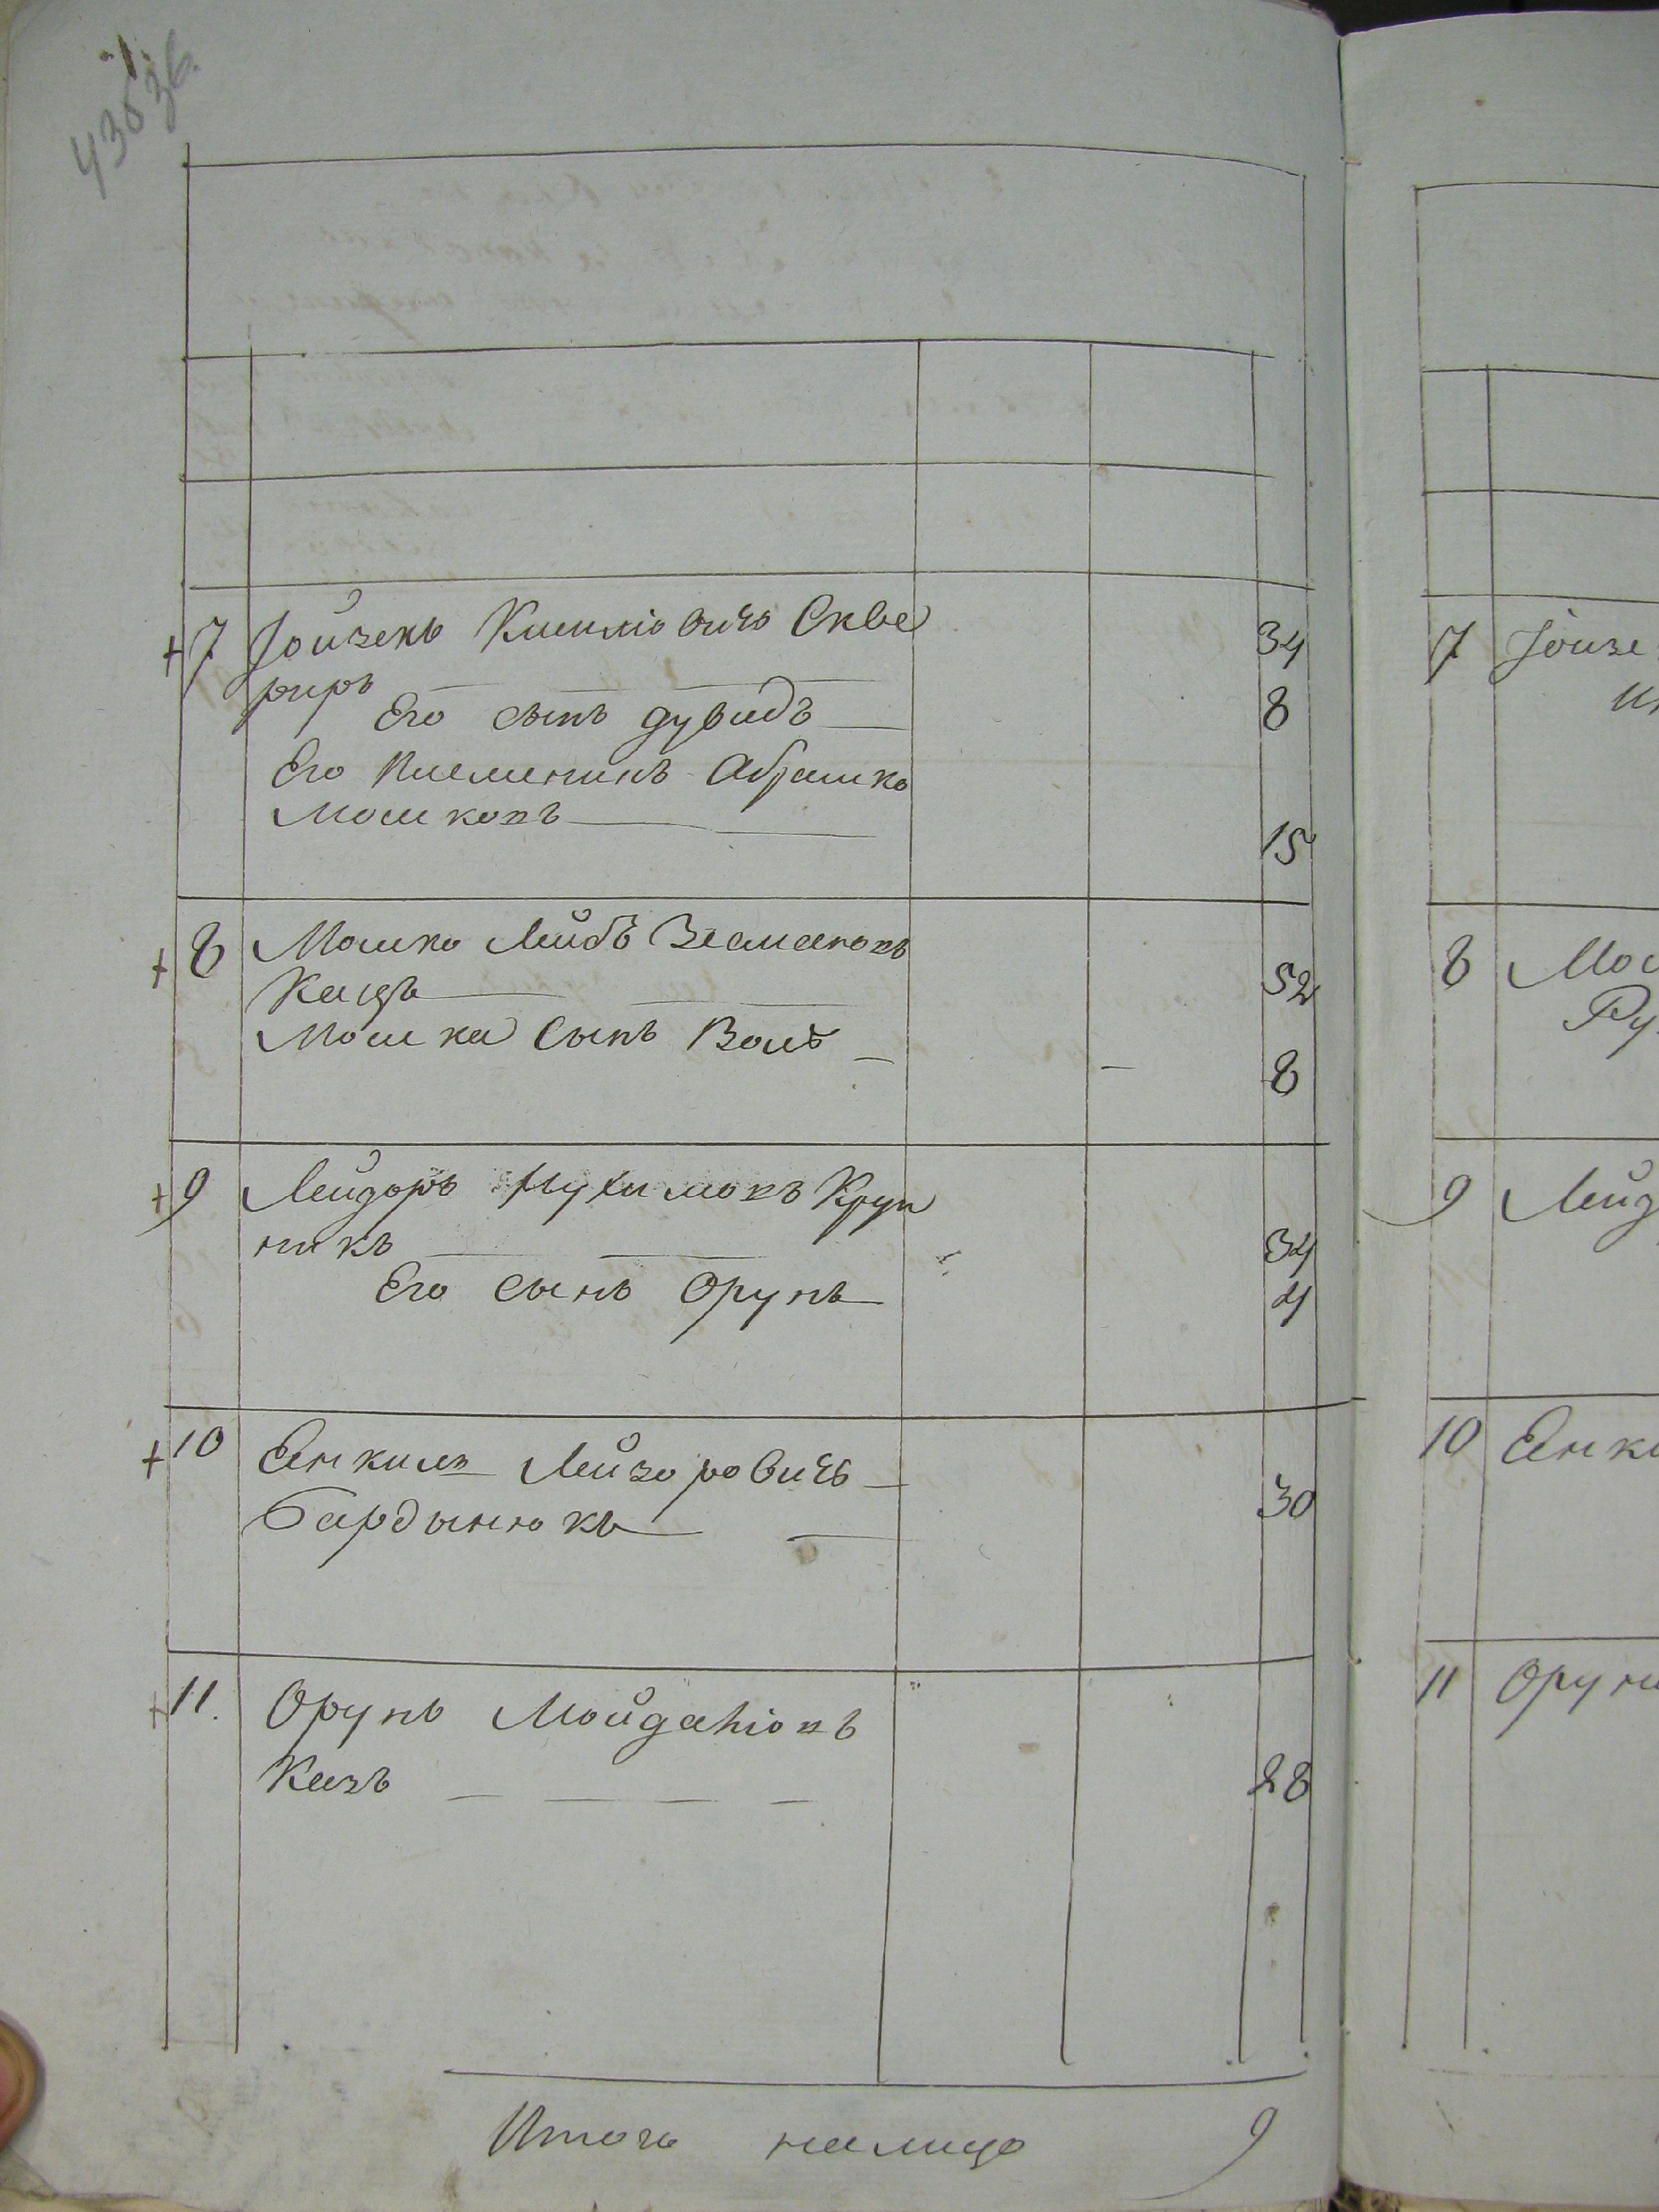 43об 36.
+ 7 Іойзепъ Кисиліовичъ Скве 34
риръ
Его сынъ дувидъ 8
Его Племеникъ Абрамко
Мошковъ 15
+ 8 Мошко Лейбъ Зеамановъ
Кацъ 52
Мошка Сынъ Воль 8
+ 9 Лейдоръ Нухимовъ Круп
никъ 34
Его Сынъ Орунъ 4
+ 10 Енкиль Лейзоровичъ
Бардынюкъ 30
+ 11. Орунъ Мойданіовъ
Казъ 28
Итого налицо 9
7 Іойзе
8 Мо
Ру
9 Лейд
10 Енк
11 Орун